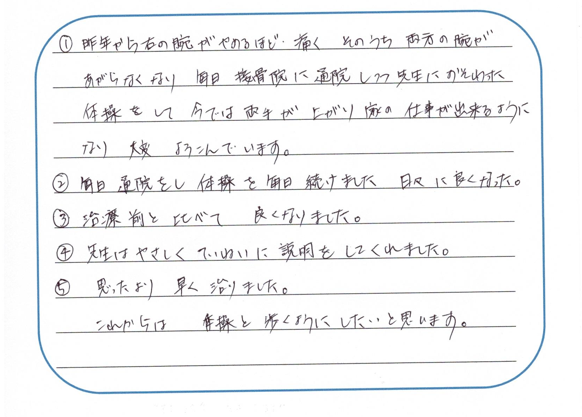 ① 昨年から右の腕がやめるほど痛く そのうち 両方の腕が
あがらなくなり 毎日 接骨院に通院しつつ先生におそわった
体操をして 今では両手が上がり 家の仕事が出来るように
なり 大変 よろこんでいます。
② 毎日 通院をし 体操を毎日 続けました 日々に良くなった。
③ 治療前と比べて 良くなりました。
④ 先生はやさしく ていねいに 説明をしてくれました。
⑤ 思ったより 早く 治りました。
これからは 体操と 歩くようにしたいと思います。